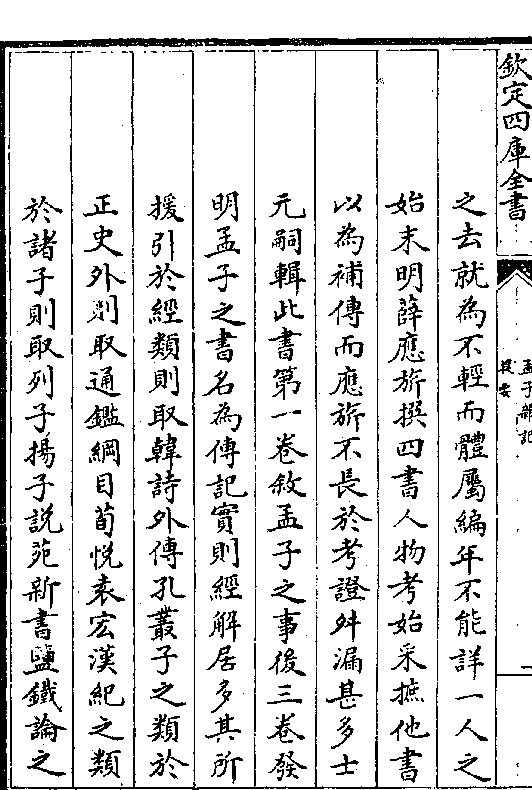 欽定四庫全書
提要
之去就為不輕而體屬編年不能詳一人之
始末明薛應旂撰四書人物考始采摭他書
以為補傳而應旂不長於考證舛漏甚多士
元嗣輯此書第一卷敘孟子之事後三卷發
明孟子之書名為傳記實則經解居多其所
援引於經類則取韓詩外傳孔叢子之類於
正史外則取通鑑綱目荀悅袁宏漢紀之類
於諸子則取列子揚子說苑新書鹽鐵論之